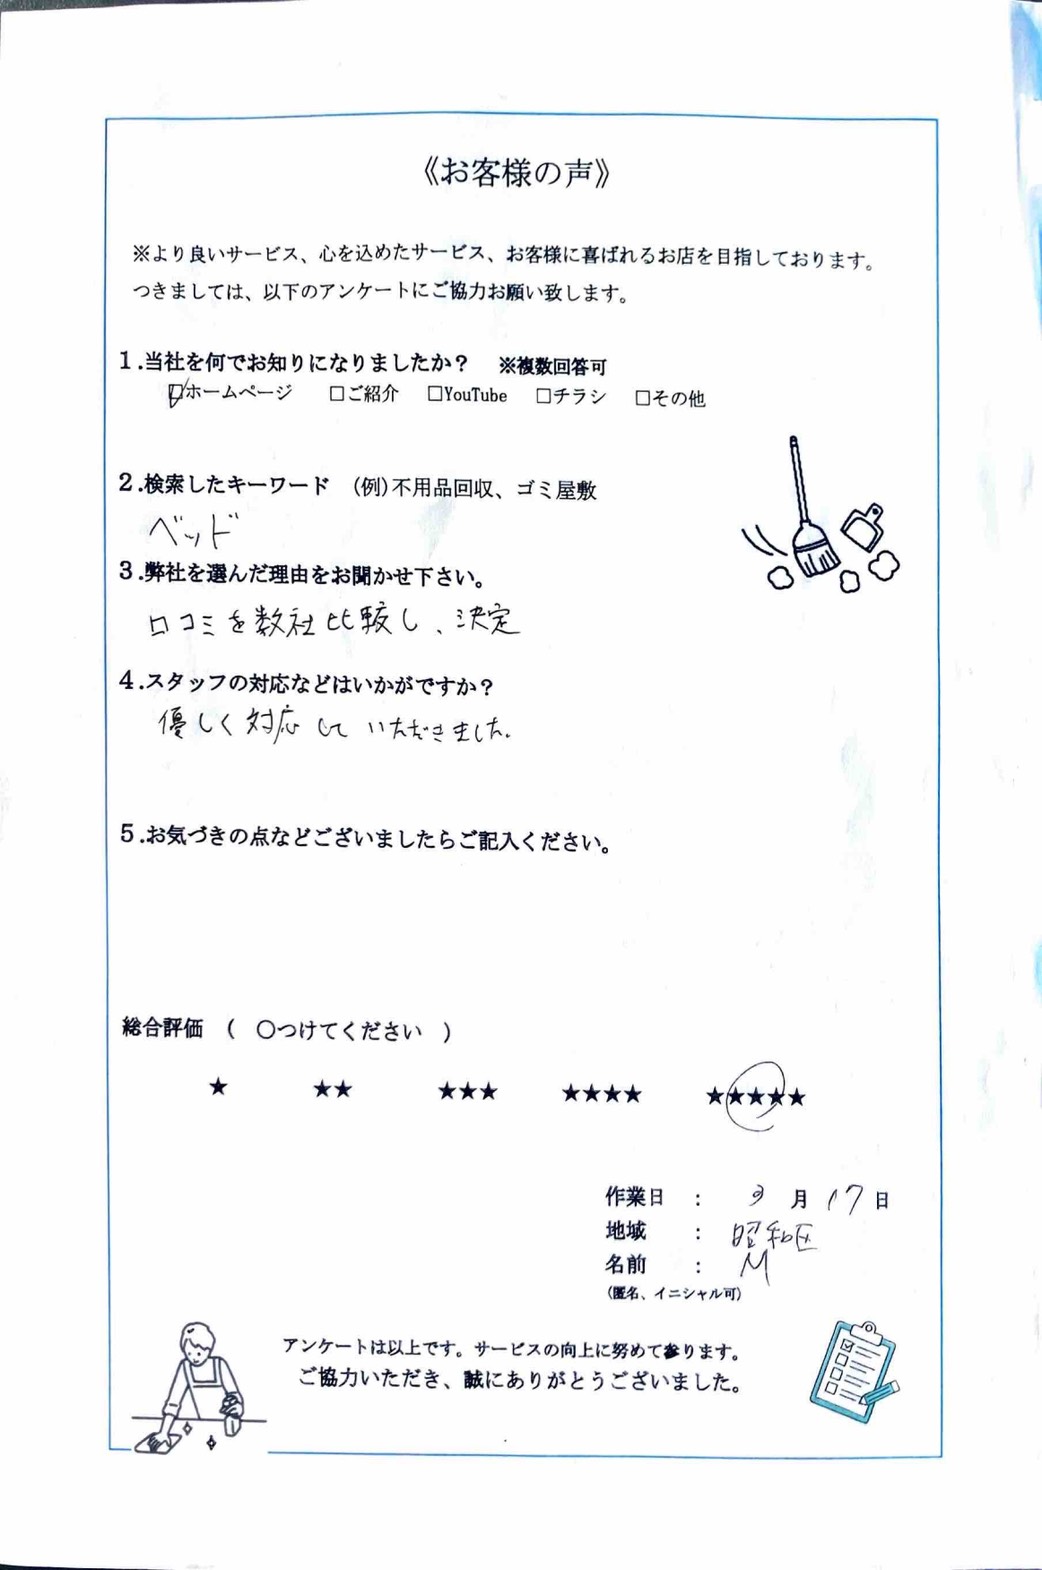 《お客様の声》
※より良いサービス、心を込めたサービス、お客様に喜ばれるお店を目指しております。
つきましては、以下のアンケートにご協力お願い致します。
1.当社を何でお知りになりましたか？　※複数回答可
☑ホームページ　□ご紹介　□YouTube　□チラシ　□その他
2.検索したキーワード　(例)不用品回収、ゴミ屋敷
ベッド
3.弊社を選んだ理由をお聞かせ下さい。
口コミを数社比較し、決定
4.スタッフの対応などはいかがですか？
優しく対応していただきました。
5.お気づきの点などございましたらご記入ください。
総合評価　(　〇つけてください　)
★　★★　★★★　★★★★　★★★★★
作業日　:　9月17日
地域　:　昭和区
名前　:　M
(匿名、イニシャル可)
アンケートは以上です。サービスの向上に努めて参ります。
ご協力いただき、誠にありがとうございました。